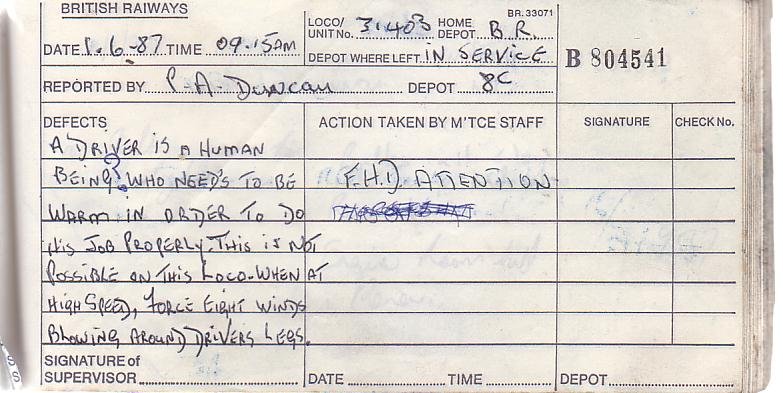 BRITISH RAILWAYS
BR. 33071
LOCO/ UNIT No. 31.403 HOME DEPOT B.R.
DATE 1.6-87 TIME 09.15AM
DEPOT WHERE LEFT IN SERVICE
B 804541
REPORTED BY P.A. DUNCAN DEPOT 8C
DEFECTS ACTION TAKEN BY M'TCE STAFF SIGNATURE CHECK No.
A DRIVER IS A HUMAN
BEING? WHO NEED'S TO BE F.H.D. ATTENTION
WARM IN ORDER TO DO
HIS JOB PROPERLY. THIS IS NOT
POSSIBLE ON THIS LOCO-WHEN AT
HIGH SPEED, FORCE EIGHT WINDS
BLOWING AROUND DRIVERS LEGS.
SIGNATURE of
SUPERVISOR DATE TIME DEPOT